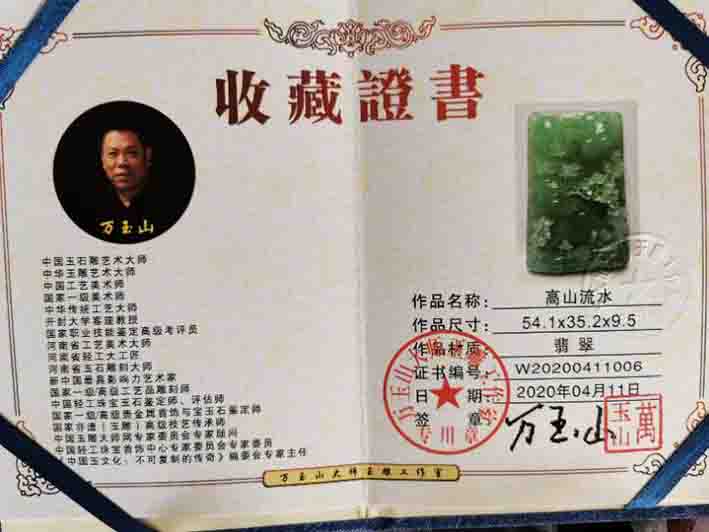 收藏證書
万玉山
中国玉石雕艺术大师
中华玉雕艺术大师
中国工艺美术师
国家一级美术师
中华传统工艺大师
开封大学客座教授
国家职业技能鉴定高级考评员
河南省工艺美术大师
河南省轻工大工匠
河南省玉石雕刻大师
新中国最具影响力艺术家
国家一级/高级工艺品雕刻师
中国轻工珠宝玉石鉴定师、评估师
国家一级/高级贵金属首饰与宝玉石鉴定师
国家非遗（玉雕）高级技艺传承师
中国玉雕大师网专家委员会专家顾问
中国轻工珠宝首饰中心专家委员会专家委员
《中国玉文化：不可复制的传奇》编委会专家主任
作品名称：高山流水
作品尺寸：54.1x35.2x9.5
作品材质：翡翠
证书编号：W20200411006
日期：2020年04月11日
签章：万玉山
萬玉山
专用章
万玉山大师玉雕工作室